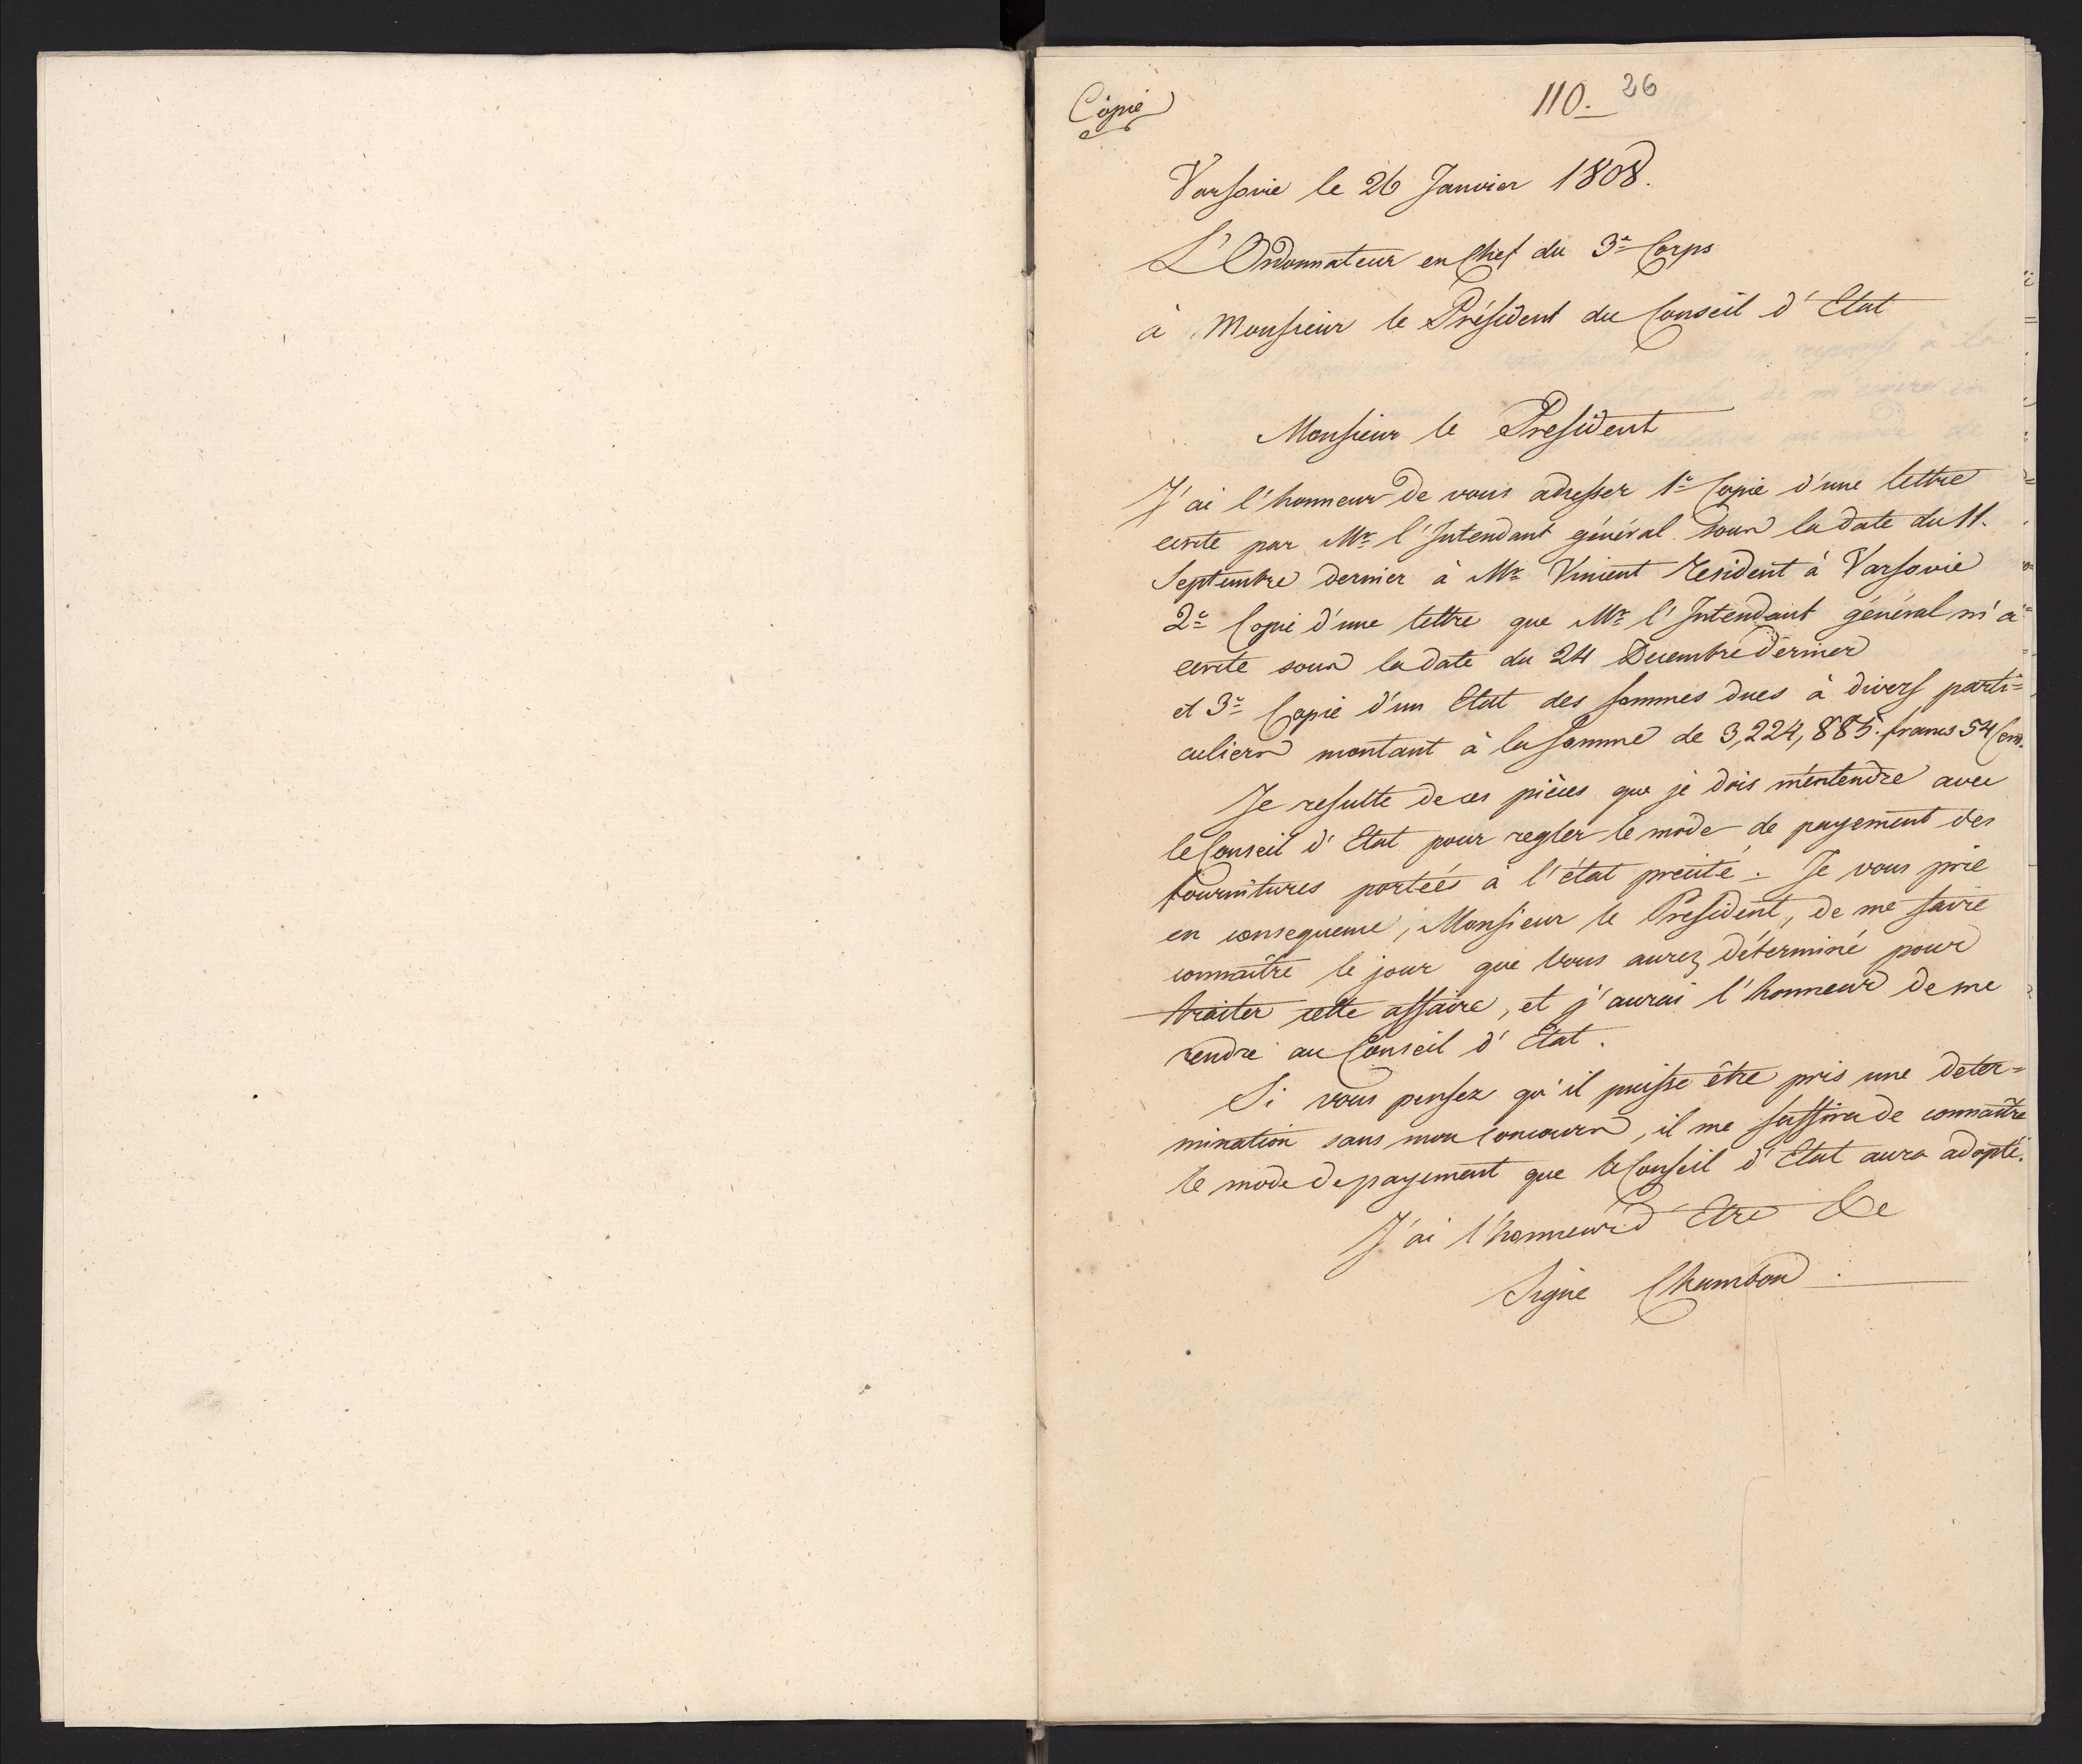 Copie
110. 26
Varsovie le 26 Janvier 1808.
L'Ordonnateur en Chef du 3e Corps
à Monsieur le Président du Conseil d'Etat
Monsieur le President
J'ai l'honneur de vous adresser 1e Copie d'une lettre
ecrite par Mr l'Intendant général sous la date du 11.
Septembre dernier à Mr Vincent Resident à Varsovie
2e Copie d'une lettre que Mr l'Intendant général m'a
ecrite sous la date du 24 Decembre dernier
et 3e Copie d'un Etat des sommes dues à divers parti=
culiers montant à la somme de 3,224,885. francs 54 Cent.
Je resulte de ces pièces que je dois m'entendre avec
le Conseil d'Etat pour regler le mode de payement des
fournitures portées à l'état précité. Je vous prie
en consequence, Monsieur le President, de me faire
connaître le jour que vous aurez déterminé pour
traiter cette affaire, et j'aurai l'honneur de me
rendre au Conseil d'Etat.
Si vous pensez qu'il puisse être pris une deter=
mination sans mon concours, il me suffira de connaître
le mode de payement que le Conseil d'Etat aura adopté.
J'ai l'honneur d'Etre &c
Signé Chambon.